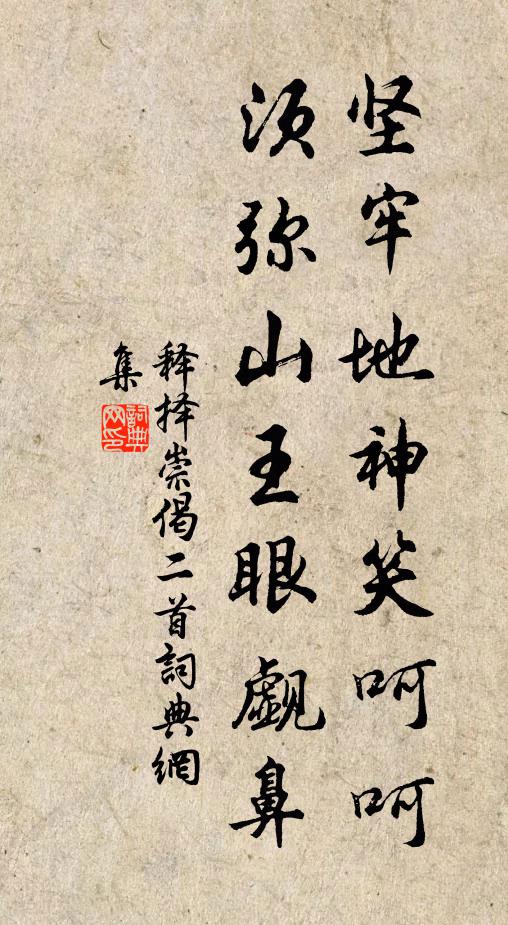 坚牢地神笑呵呵
须弥山王眼觑鼻
释择崇偈二首詞典網
集
詞典
网印